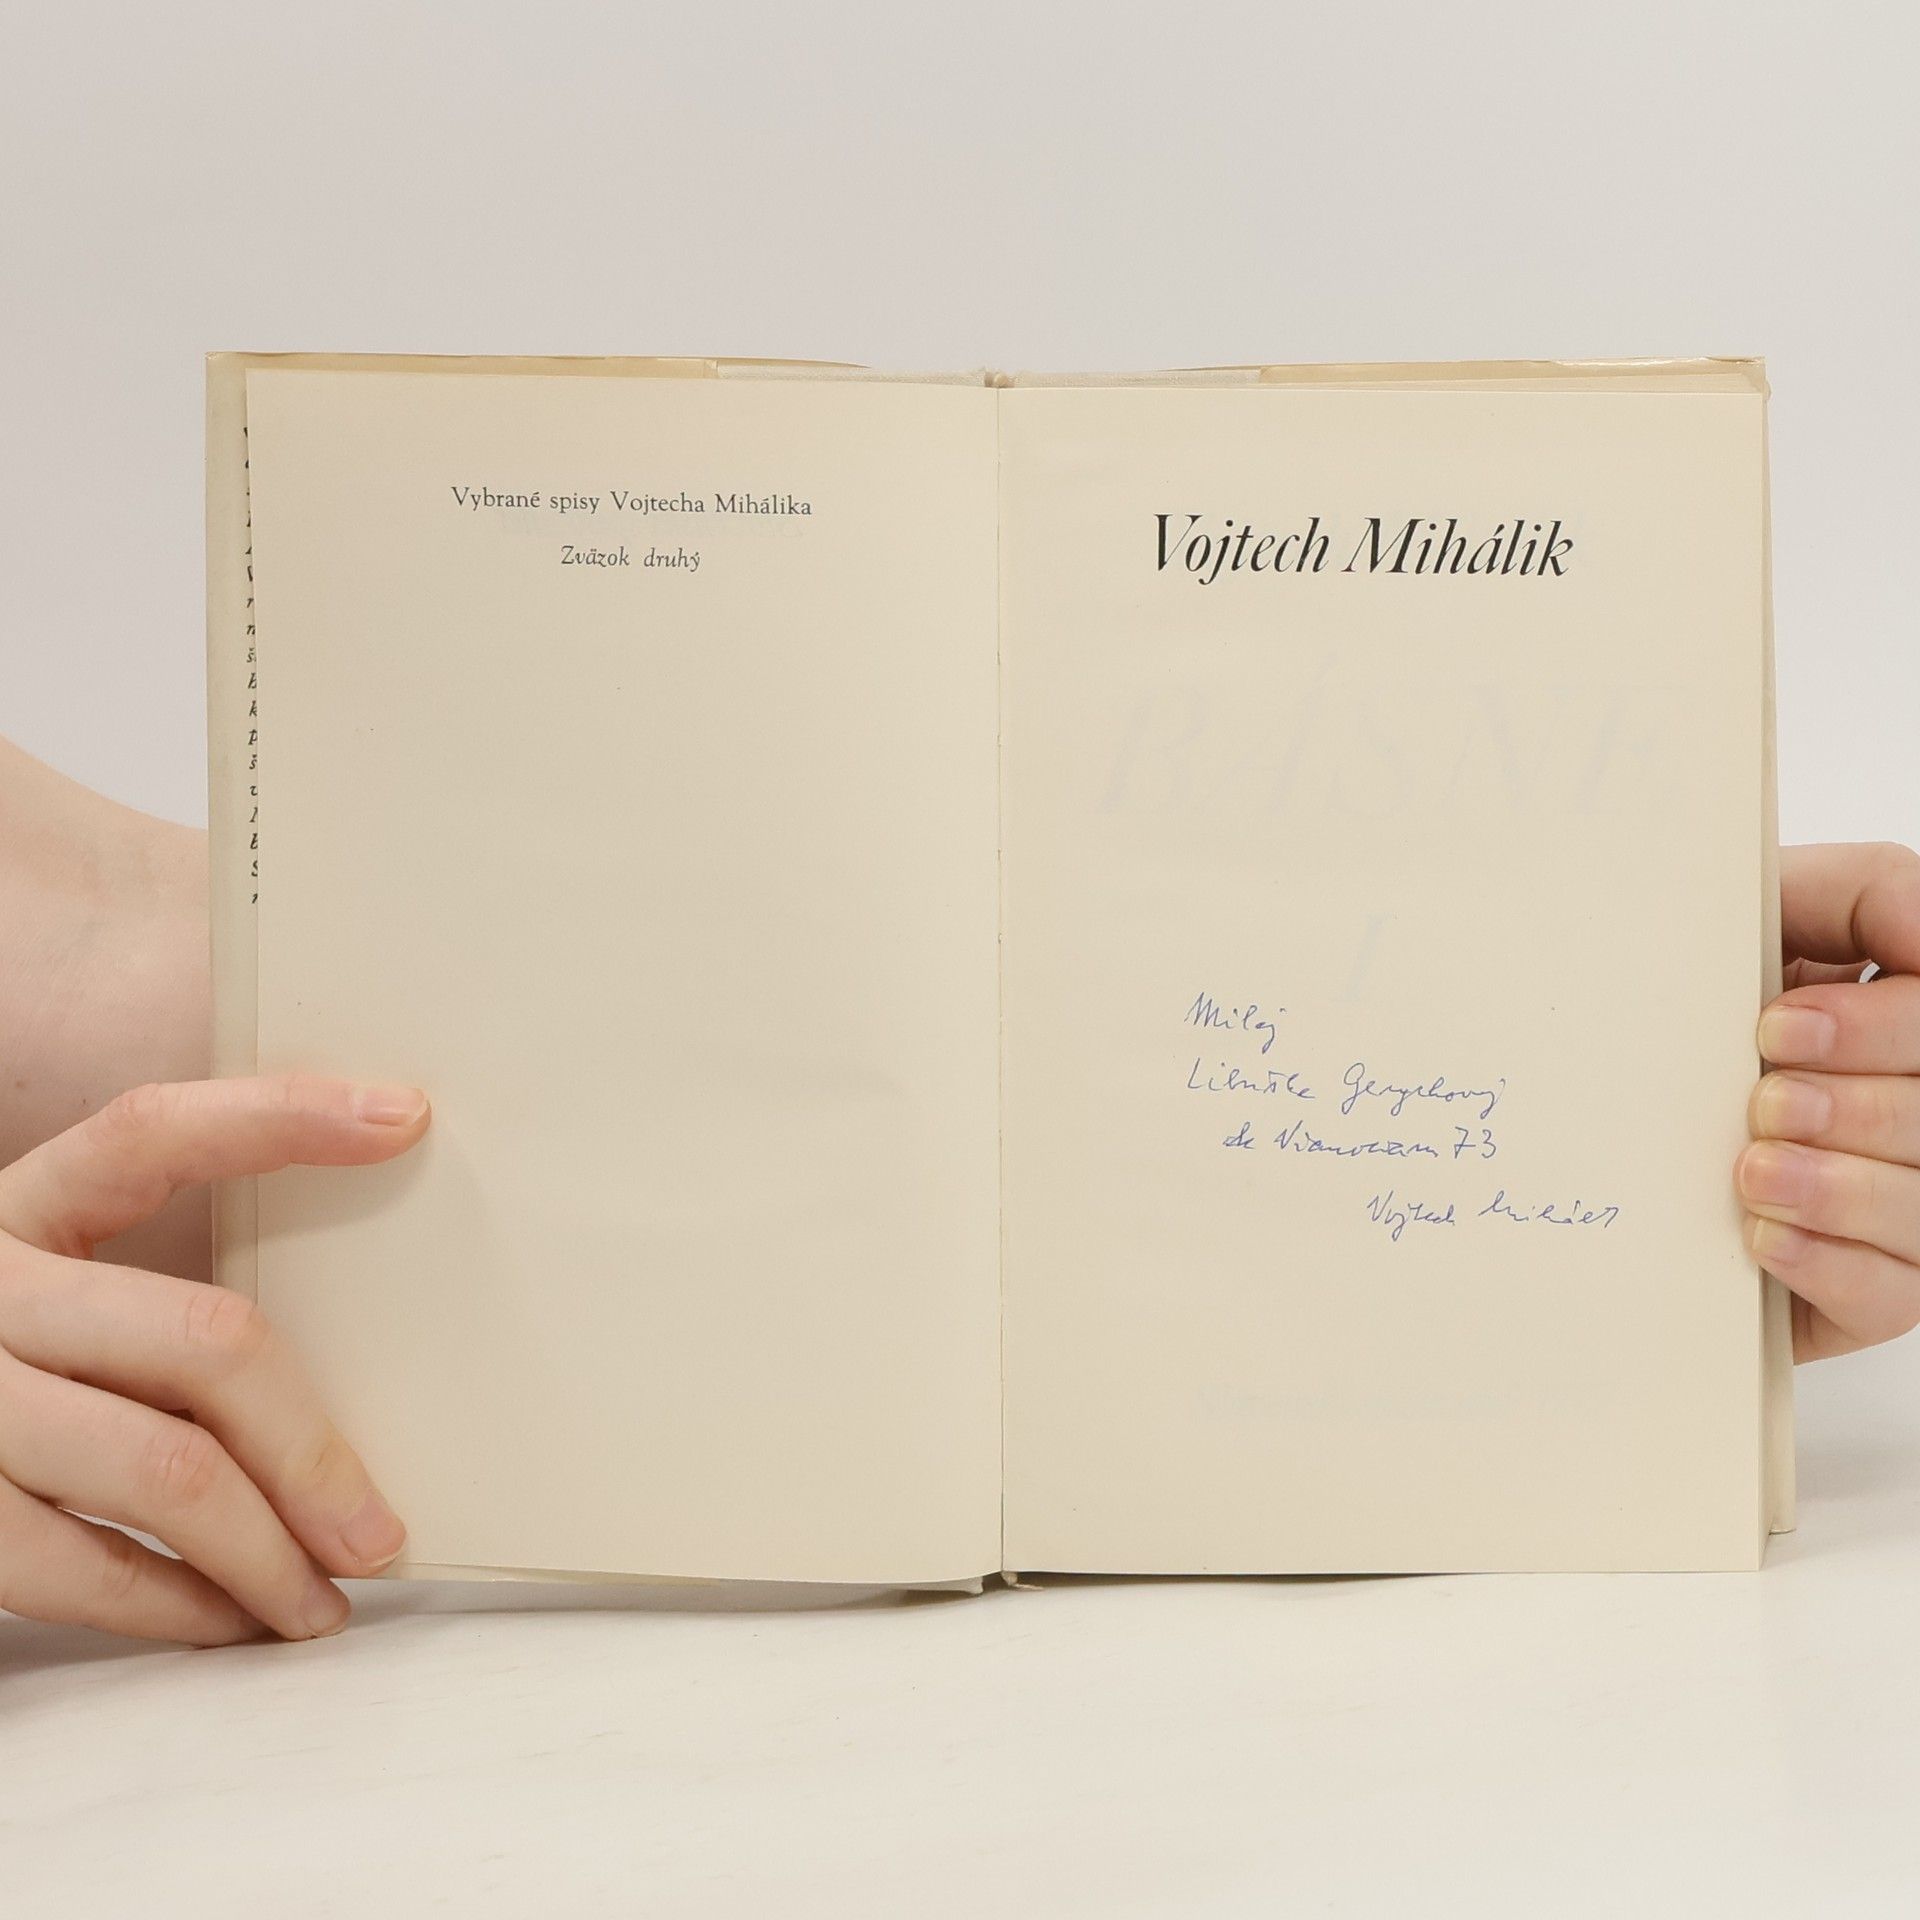 Vybrané spisy Vojtecha Mihálika
Zväzok druhý
Vojtech Mihálik
BÁSNE
I
Milej
Libuške Gerychovej
k Vianociam 73
Vojtech Mihálik